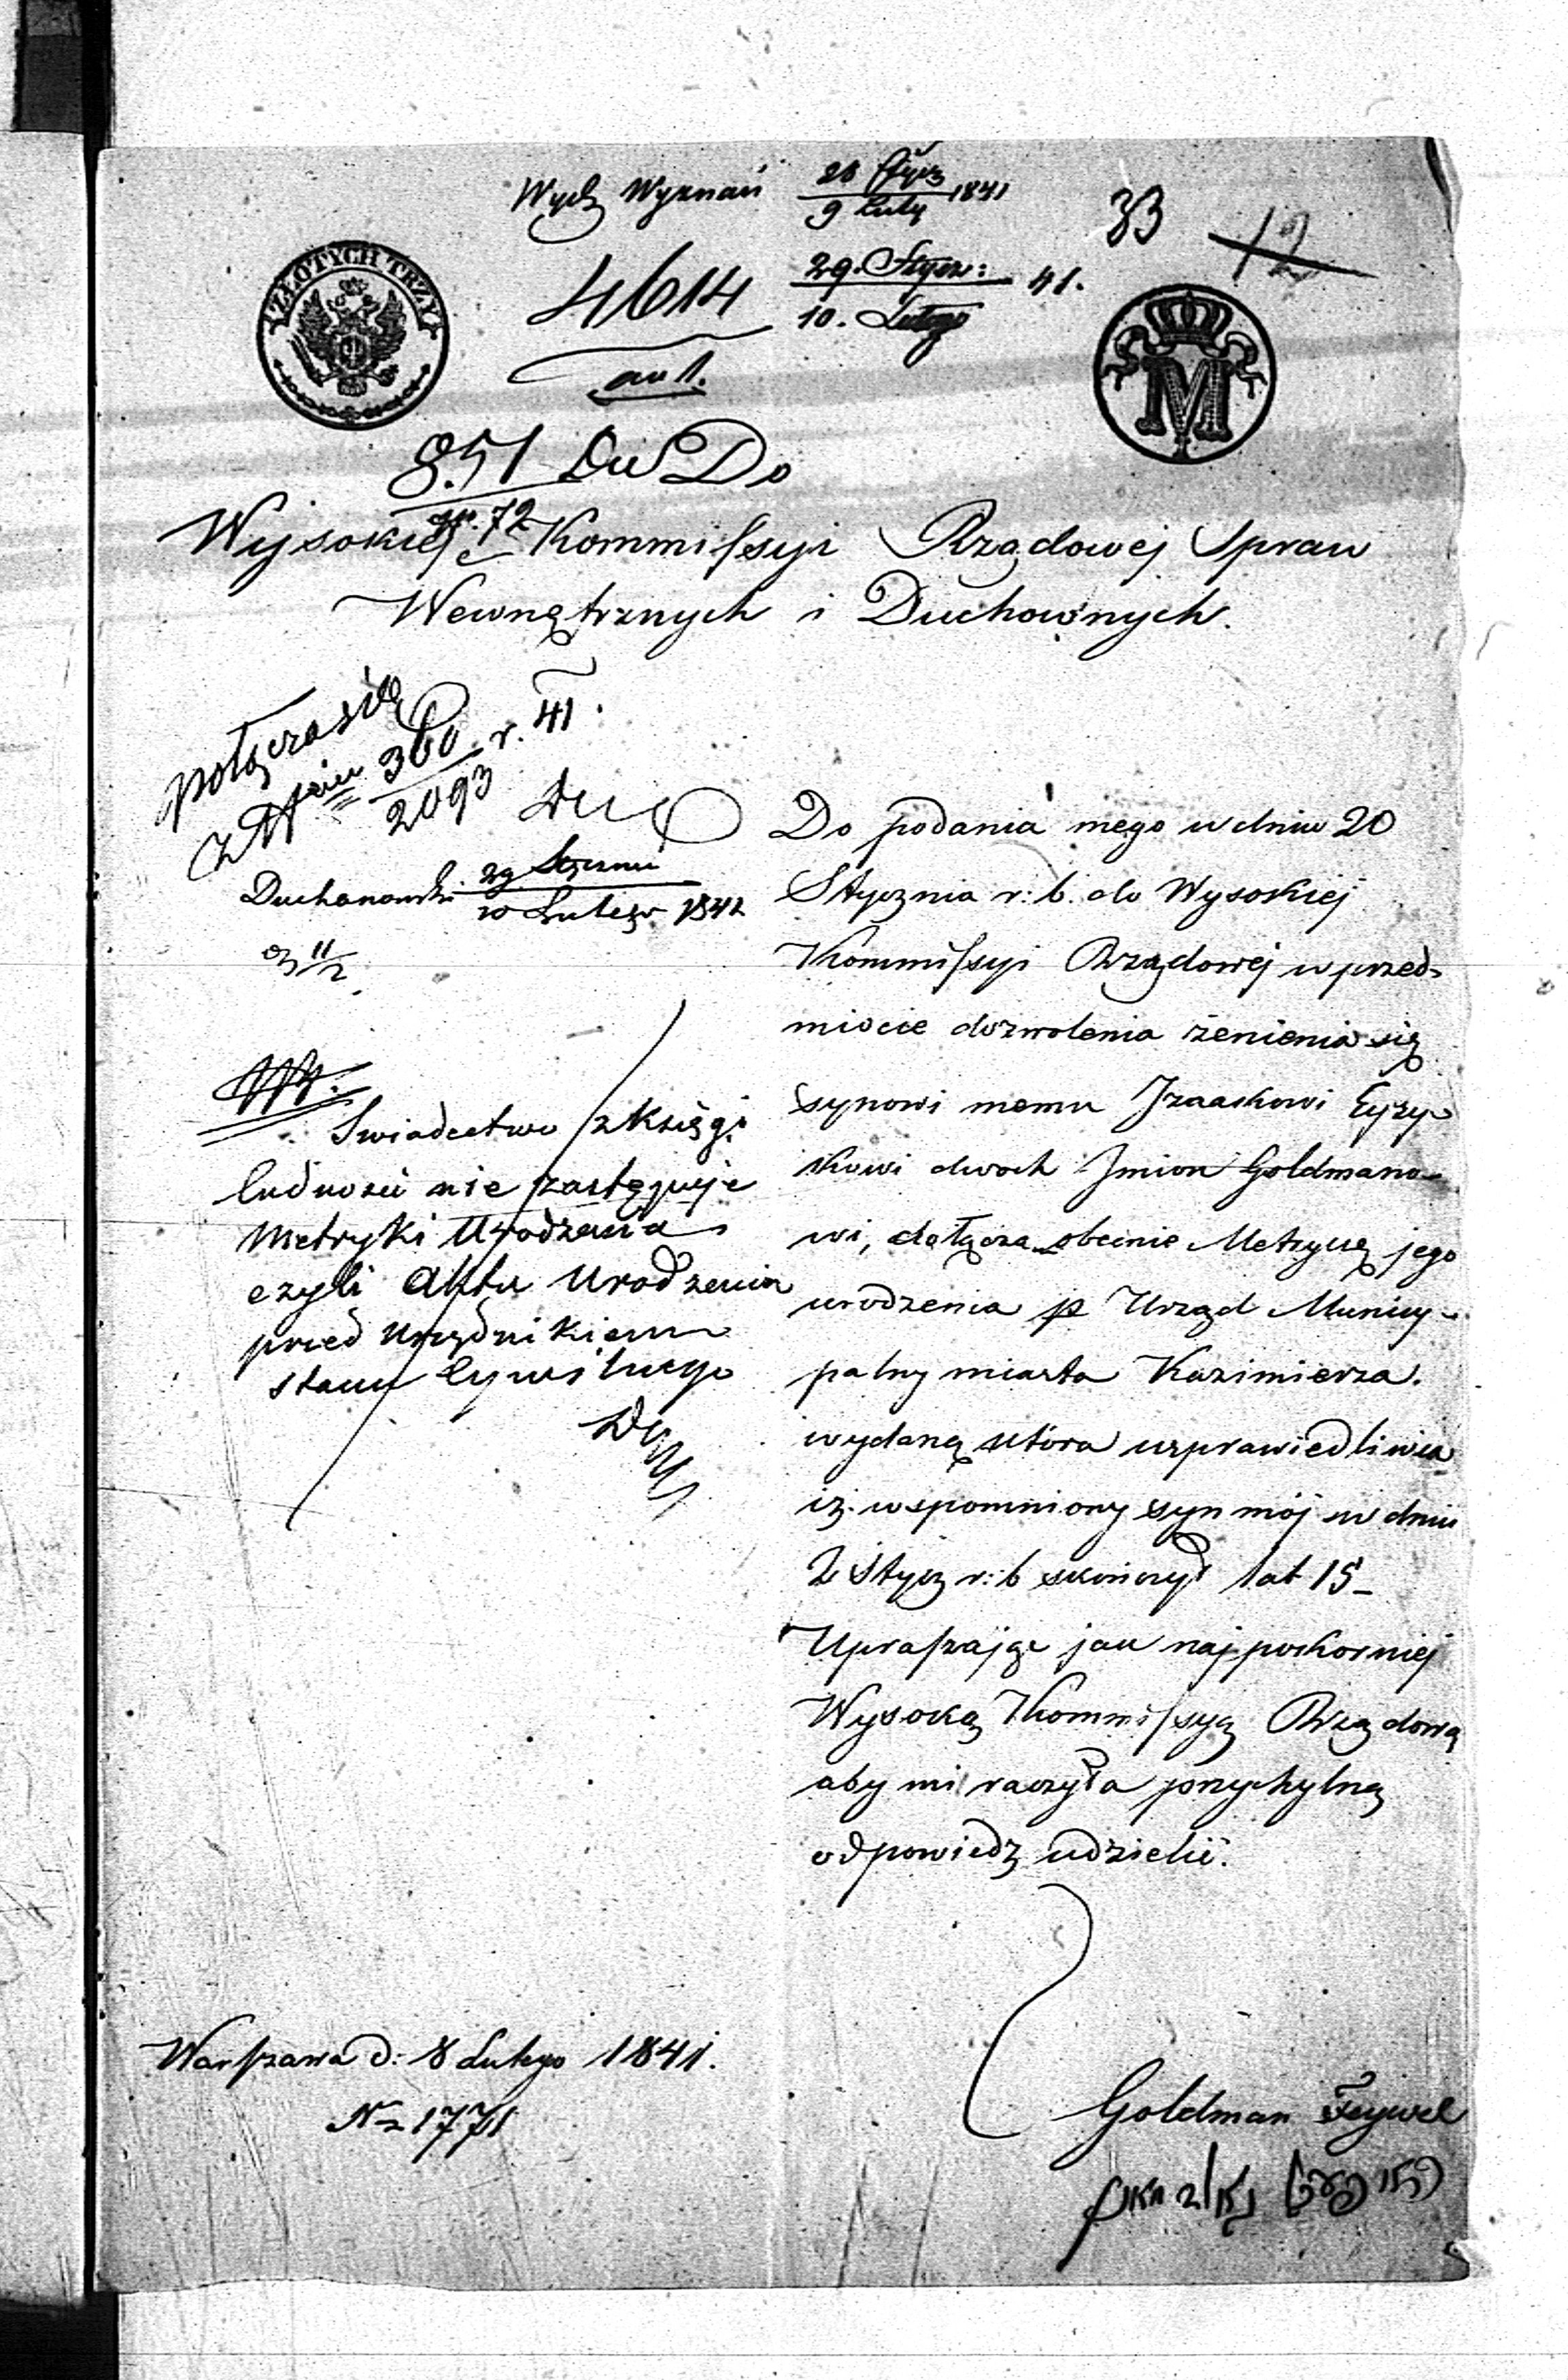 Wydz Wyznań 28 Stycz / 9 Luty 1841
33 12
4614 29. Stycz: / 10. Lutego 41.
ZŁOTYCH TRZY
M
851 Do
Wysokiéj Kommissyi Rządowéj Spraw
72
Wewnętrznych i Duchownych.
połącza się
z 360 / 2093 r. 41.
29 Stycznia / 10 Lutego 1841
11/2
Swiadectwo z Księgi
ludności nie zastępuje
Metryki Urodzenia
czyli Aktu Urodzenia
przed Urzędnikiem
stanu Cywilnego
Do podania mego w dniu 20
Stycznia r: b. do Wysokiej
Kommissyi Rządowej w przed-
miocie dozwolenia żenienia się
synowi memu Izaakowi Eyzy-
kowi dwoch Imion Goldmano-
wi, dołącza obecnie Metrykę jego
urodzenia p Urząd Municy-
palny miasta Kazimierza.
wydaną która usprawiedliwia
iż wspomniony syn mój w dniu
2 Stycz r: b skończył lat 15 -
Upraszając jak najpokorniej
Wysoką Kommissyą Rządową
aby mi raczyła przychylną
odpowiedz udzielić.
Warszawa d: 8 Lutego 1841.
No 1771
Goldman Feywel